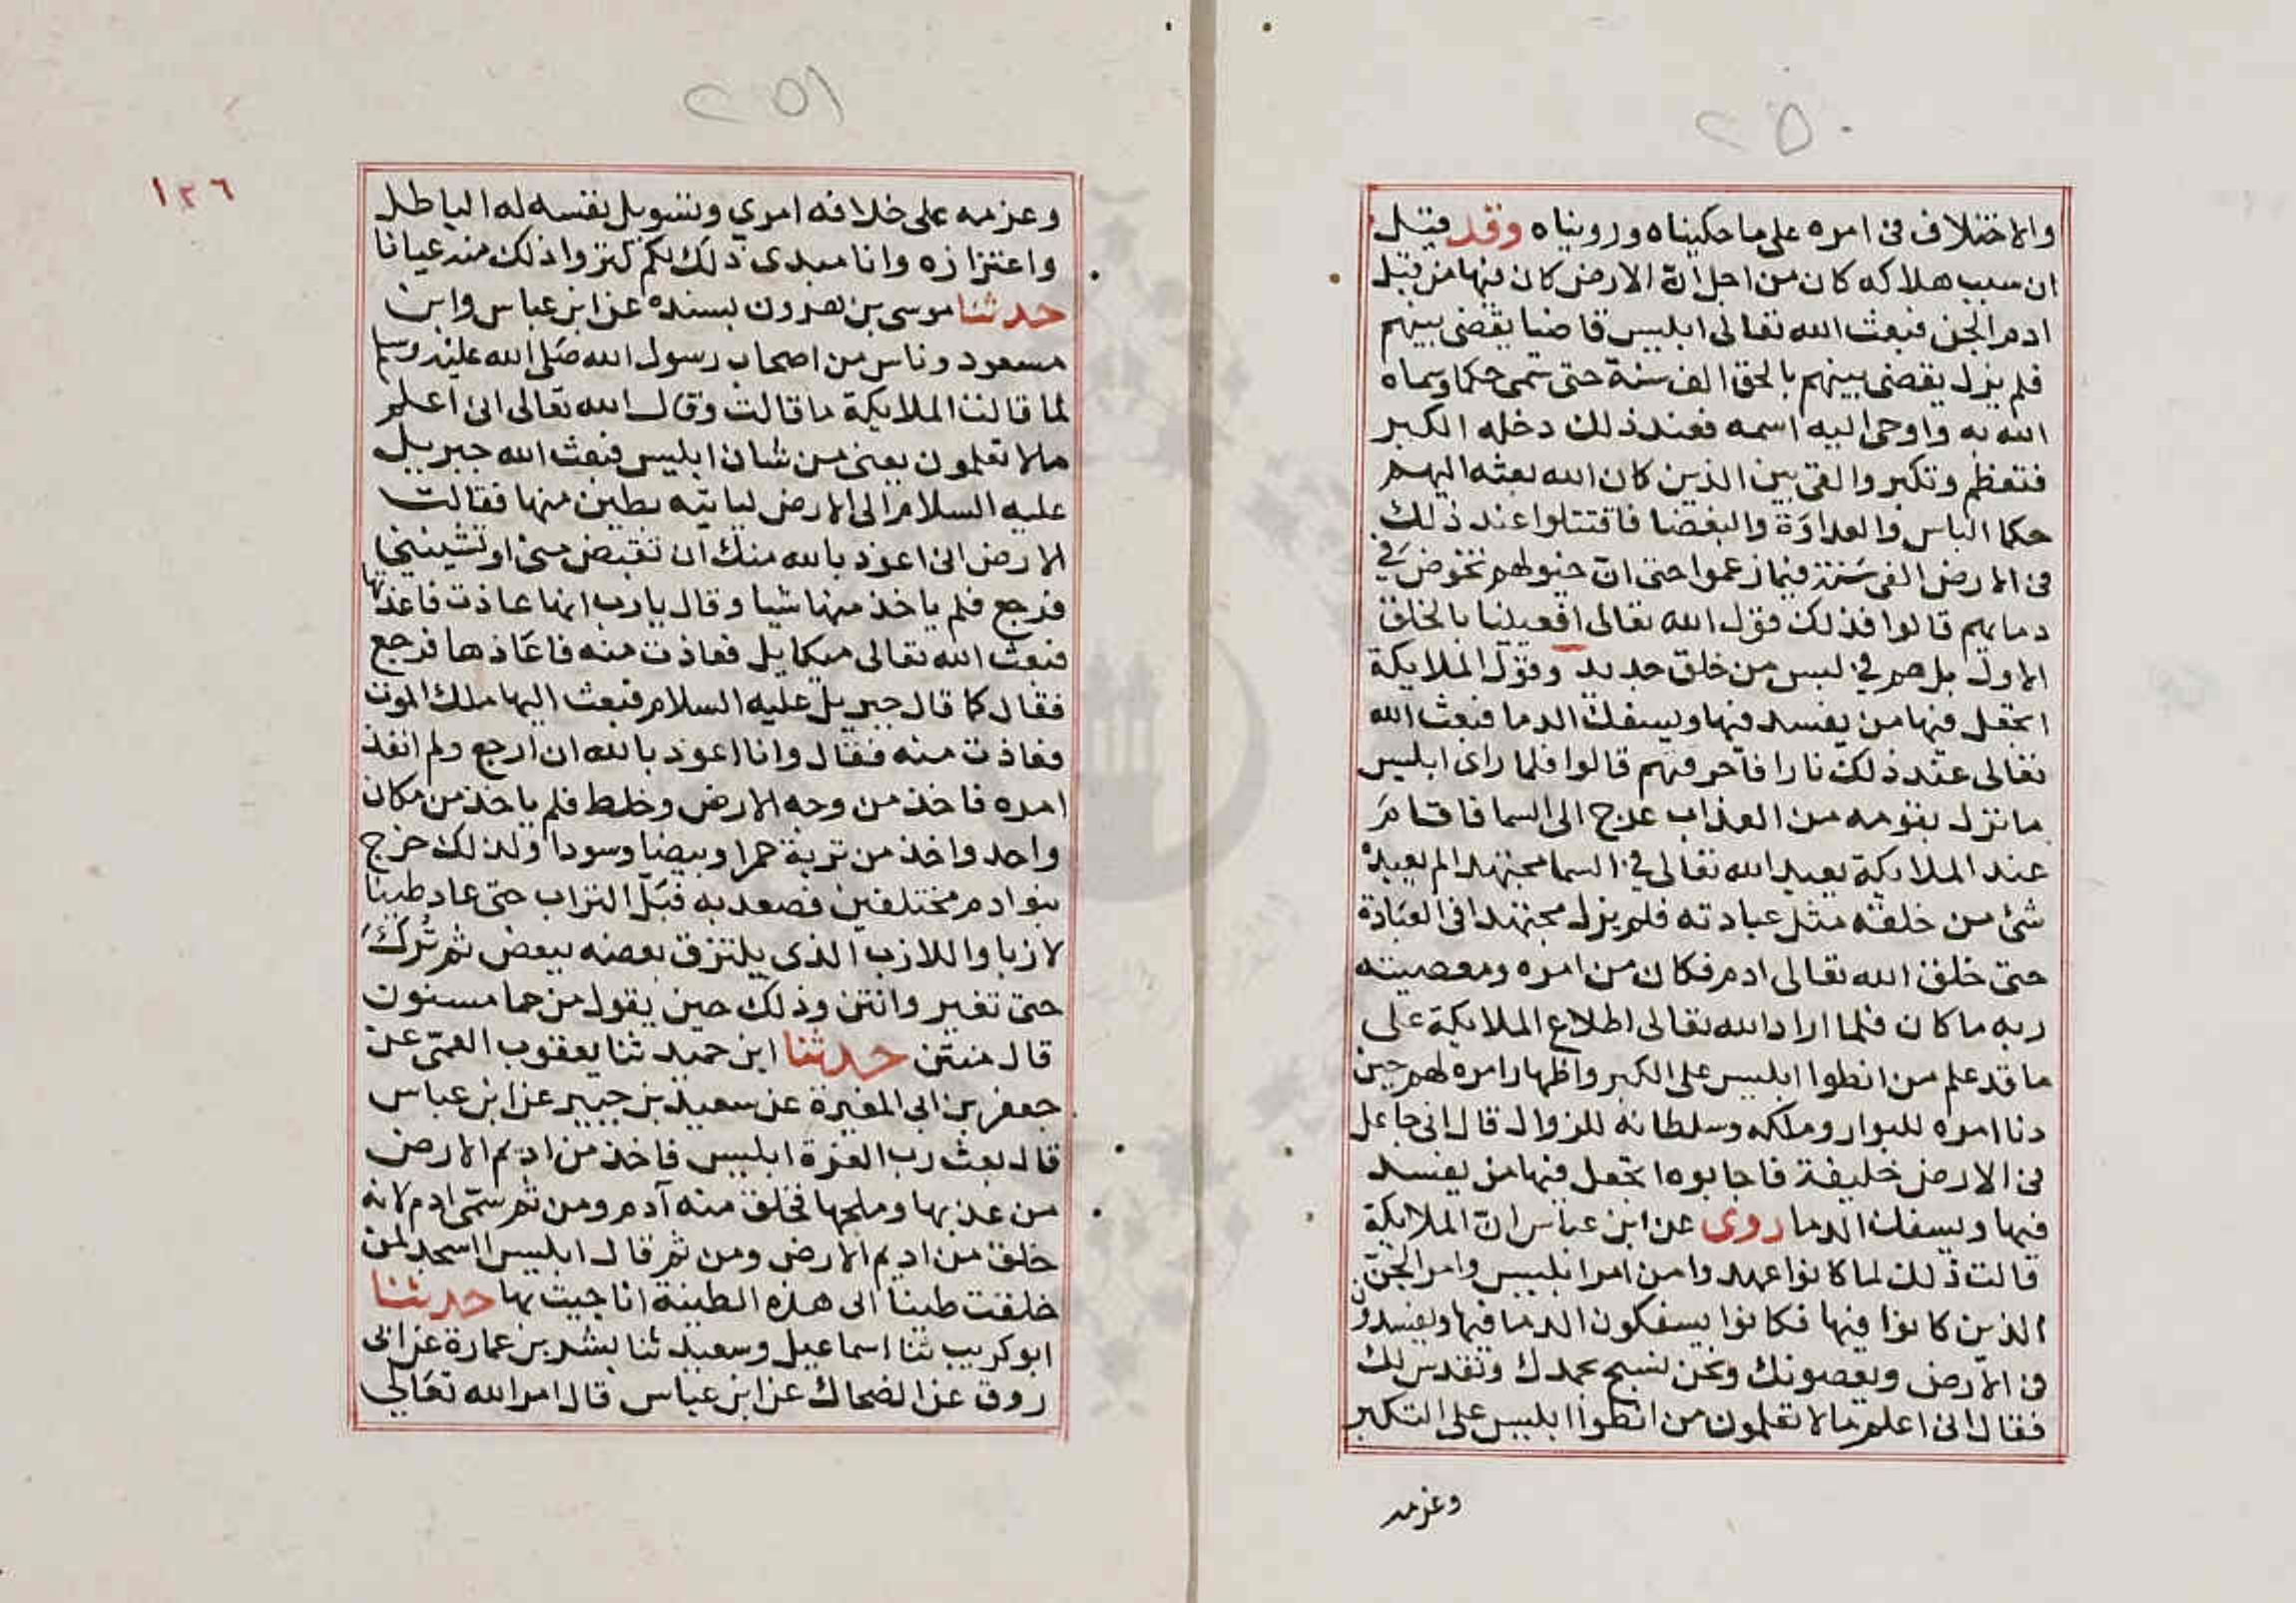 ٢٥٠
والاختلاف فى امره على ما حكيناه ورويناه وقد قيل
ان سبب هلاكه كان من اجل انّ الارض كان فيها من قبل
ادم الجن فبعث الله تعالى ابليس قاضيا يقضى بينهم
فلم يزل يقضى بينهم بالحق الف سنة حتى سمى حكما وسماه
الله به واوحى اليه اسمه فعند ذلك دخله الكبر
فتعظم وتكبر والقى بين الذين كان الله بعثه اليهم
حكما الباس والعداوة والبغضا فاقتتلوا عند ذلك
فى الارض الفى سنة فيما زعموا حتى انّ خيولهم تخوض في
دمايهم قالوا فذلك قول الله تعالى افعيينا بالخلق
الاول بل هم في لبس من خلق جديد وقول الملايكة
اتجعل فيها من يفسد فيها ويسفك الدما فبعث الله
تعالى عند ذلك نارا فاحرقتهم قالوا فلما راى ابليس
ما نزل بقومه من العذاب عرج الى السما فاقام
عند الملايكة يعبد الله تعالى في السما مجتهدا لم يعبده
شئ من خلقه مثل عبادته فلم يزل مجتهدا فى العبادة
حتى خلق الله تعالى ادم فكان من امره ومعصيته
ربه ما كان فلما اراد الله تعالى اطلاع الملايكة على
ما قد علم من انطوا ابليس على الكبر واظهار امره لهم حين
دنا امره للبوار وملكه وسلطانه للزوال قال انى جاعل
فى الارض خليفة فاجابوه اتجعل فيها من يفسد
فيها ويسفك الدما روى عن ابن عباس انّ الملايكة
قالت ذلك لما كانوا عهدوا من امر ابليس وامر الجنّ
الذين كانوا فيها فكانوا يسفكون الدما فيها ويفسدون
فى الارض ويعصونك ونحن نسبح بحمدك ونقدس لك
فقال انى اعلم ما لا تعلمون من انطوا ابليس على التكبر
وعزمه
٢٥١
١٢٦
وعزمه على خلافه امري وتسويل نفسه له الباطل
واعتزازه وانا مبدى ذلك لكم لتروا ذلك منه عيانا
حدثنا موسى بن هرون بسنده عن ابن عباس وابن
مسعود وناس من اصحاب رسول الله صلى الله عليه وسلم
لما قالت الملايكة ما قالت وقال الله تعالى انى اعلم
مالا تعلمون يعنى من شان ابليس فبعث الله جبريل
عليه السلام الى الارض لياتيه بطين منها فقالت
الارض انى اعوذ بالله منك ان تقبض منى او تشيننى
فرجع فلم ياخذ منها شيا وقال يارب انها عاذت فاعذتها
فبعث الله تعالى ميكايل فعاذت منه فاعاذها فرجع
فقال كما قال جبريل عليه السلام فبعث اليها ملك الموت
فعاذت منه فقال وانا اعوذ بالله ان ارجع ولم انفذ
امره فاخذ من وجه الارض وخلط فلم ياخذ من مكان
واحد واخذ من تربة حمرا وبيضا وسودا ولذلك خرج
بنوادم مختلفين فصعد به فبلّ التراب حتى عاد طينا
لازبا واللازب الذى يلتزق بعضه ببعض ثم تُركَ
حتى تغير وانتن وذلك حين يقول من حما مسنون
قال منتن حدثنا ابن حميد ثنا يعقوب القمّى عن
جعفر بن ابى المغيرة عن سعيد بن جبير عن ابن عباس
قال بعث رب العزة ابليس فاخذ من اديم الارض
من عذبها وملحها فخلق منه آدم ومن ثم سمّى ادم لانه
خلق من اديم الارض ومن ثم قال ابليس ااسجد لمن
خلقت طينا الى هذه الطينة انا جيت بها حدثنا
ابو كريب ثنا اسماعيل وسعيد ثنا بشر بن عمارة عن ابى
روق عن الضحاك عن ابن عباس قال امر الله تعالى